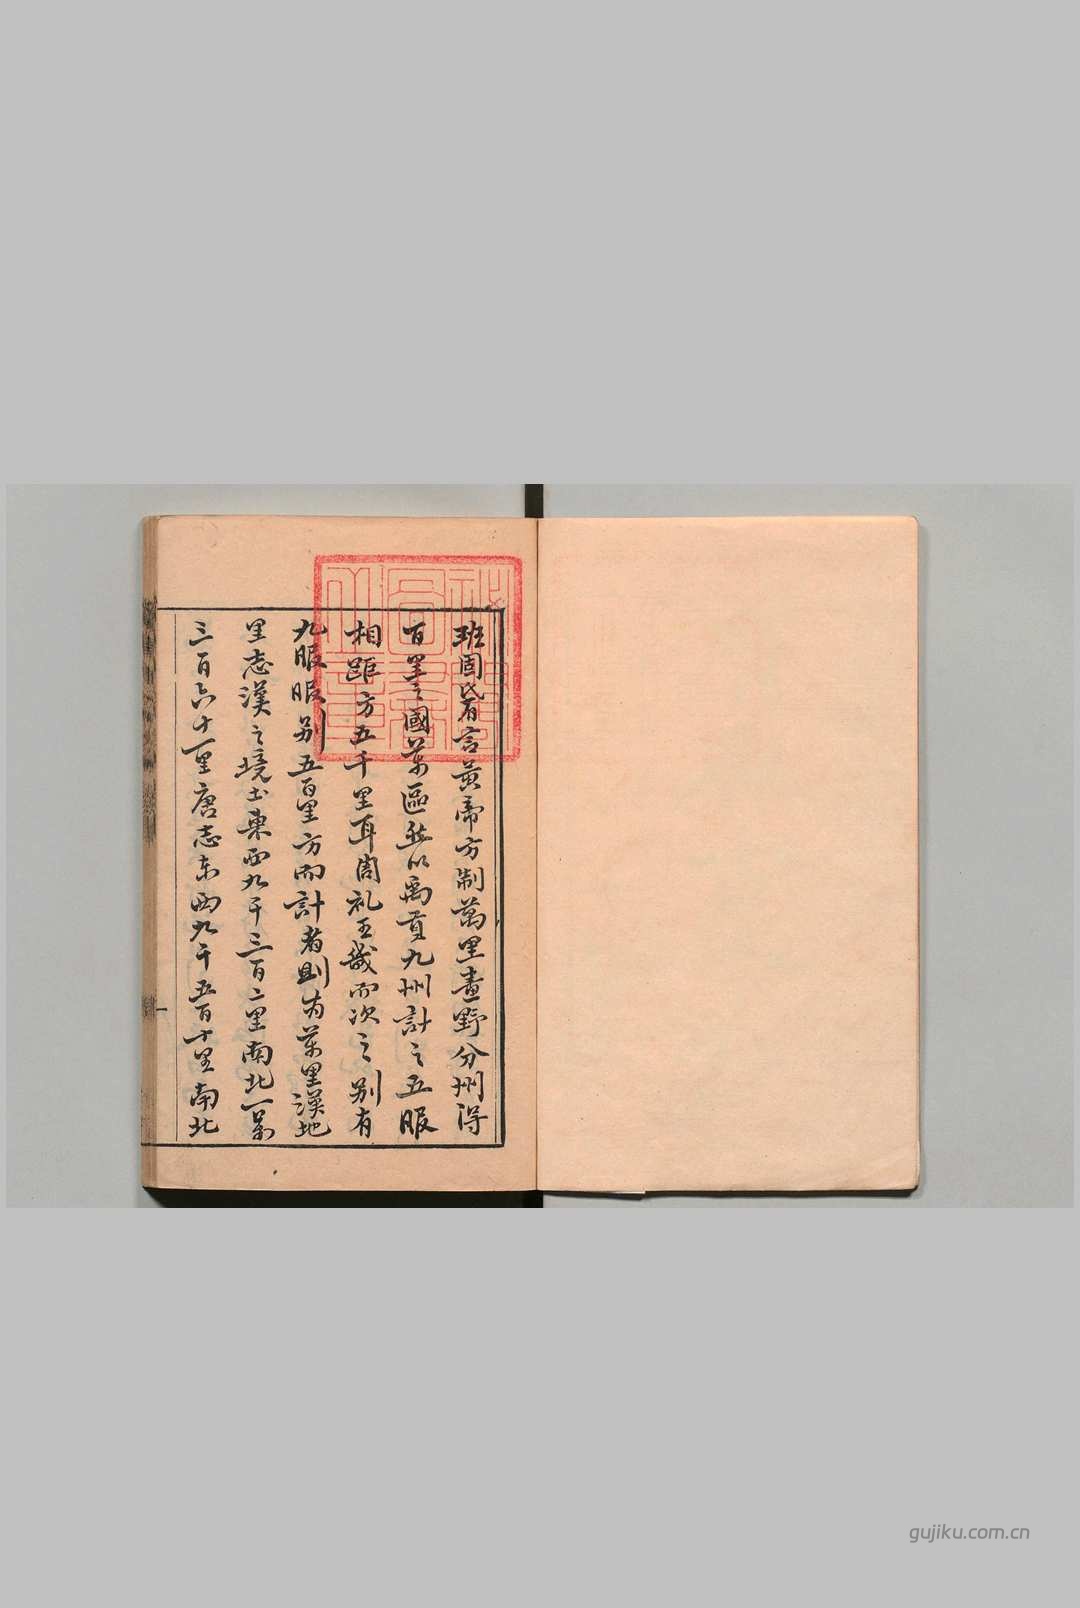 班固氏有言黃帝方制萬里畫野分州得
百里之國萬區然以禹貢九州計之五服
相距方五千里耳周礼王畿而次之別有
九服服別五百里方而計者則有萬里漢地
里志漢之境土東西九千三百二里南北一萬
三百六十里唐志东西九千五百一十里南北
gujiku.com.cn